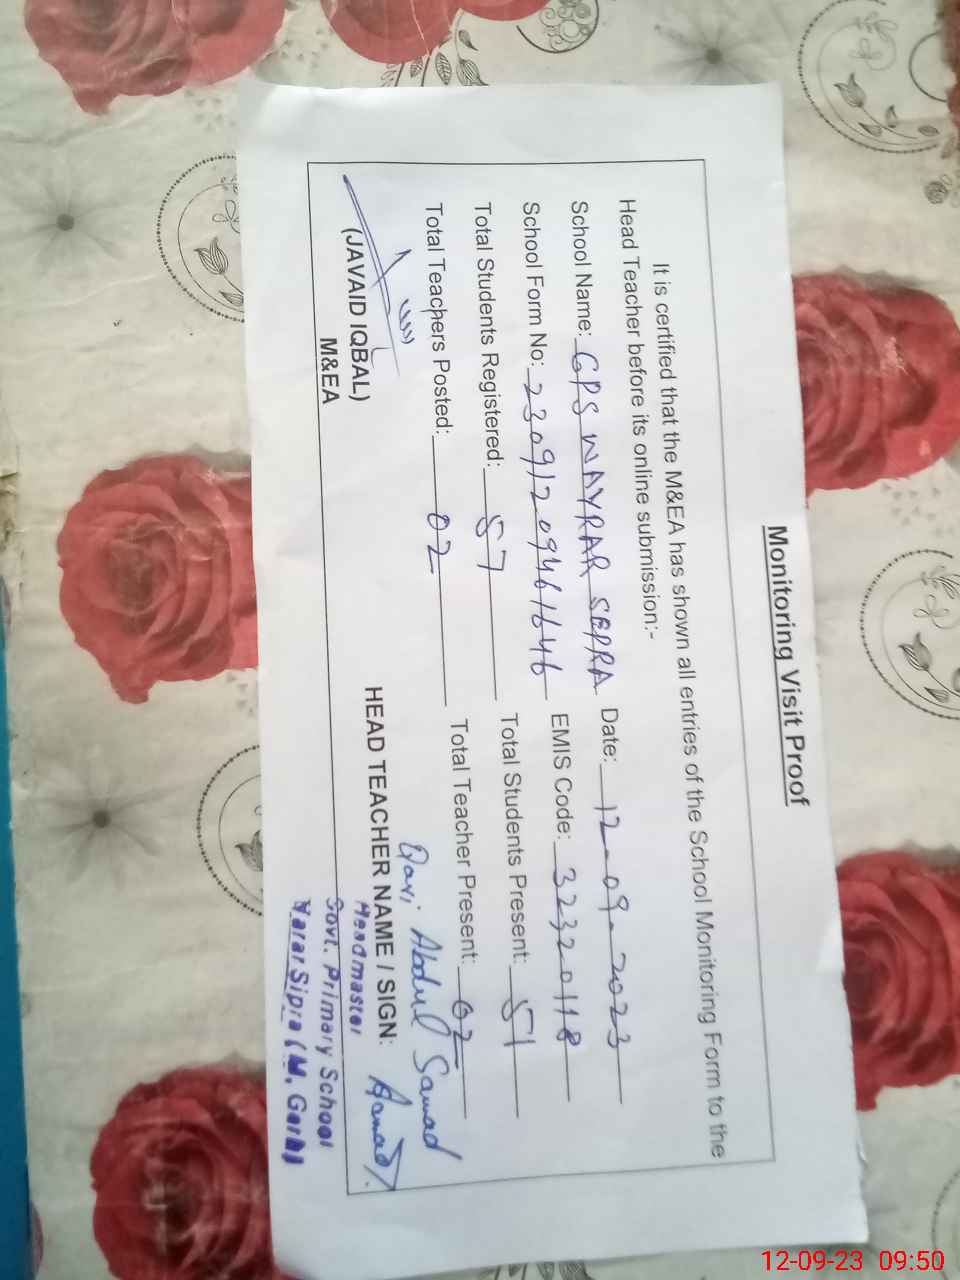 Monitoring Visit Proof
It is certified that the M&EA has shown all entries of the School Monitoring Form to the
Head Teacher before its online submission:-
School Name: GPS WAYRAR SEPRA Date: 12-09-2023
School Form No: 23091209461646 EMIS Code: 32320118
Total Students Registered: 57 Total Students Present: 51
Total Teachers Posted: 02 Total Teacher Present: 02
Qari Abdul Samad
(JAVAID IQBAL) HEAD TEACHER NAME / SIGN: Samad
M&EA
Headmaster
Govt. Primary School
Varar Sipra (M. Garh)
12-09-23 09:50